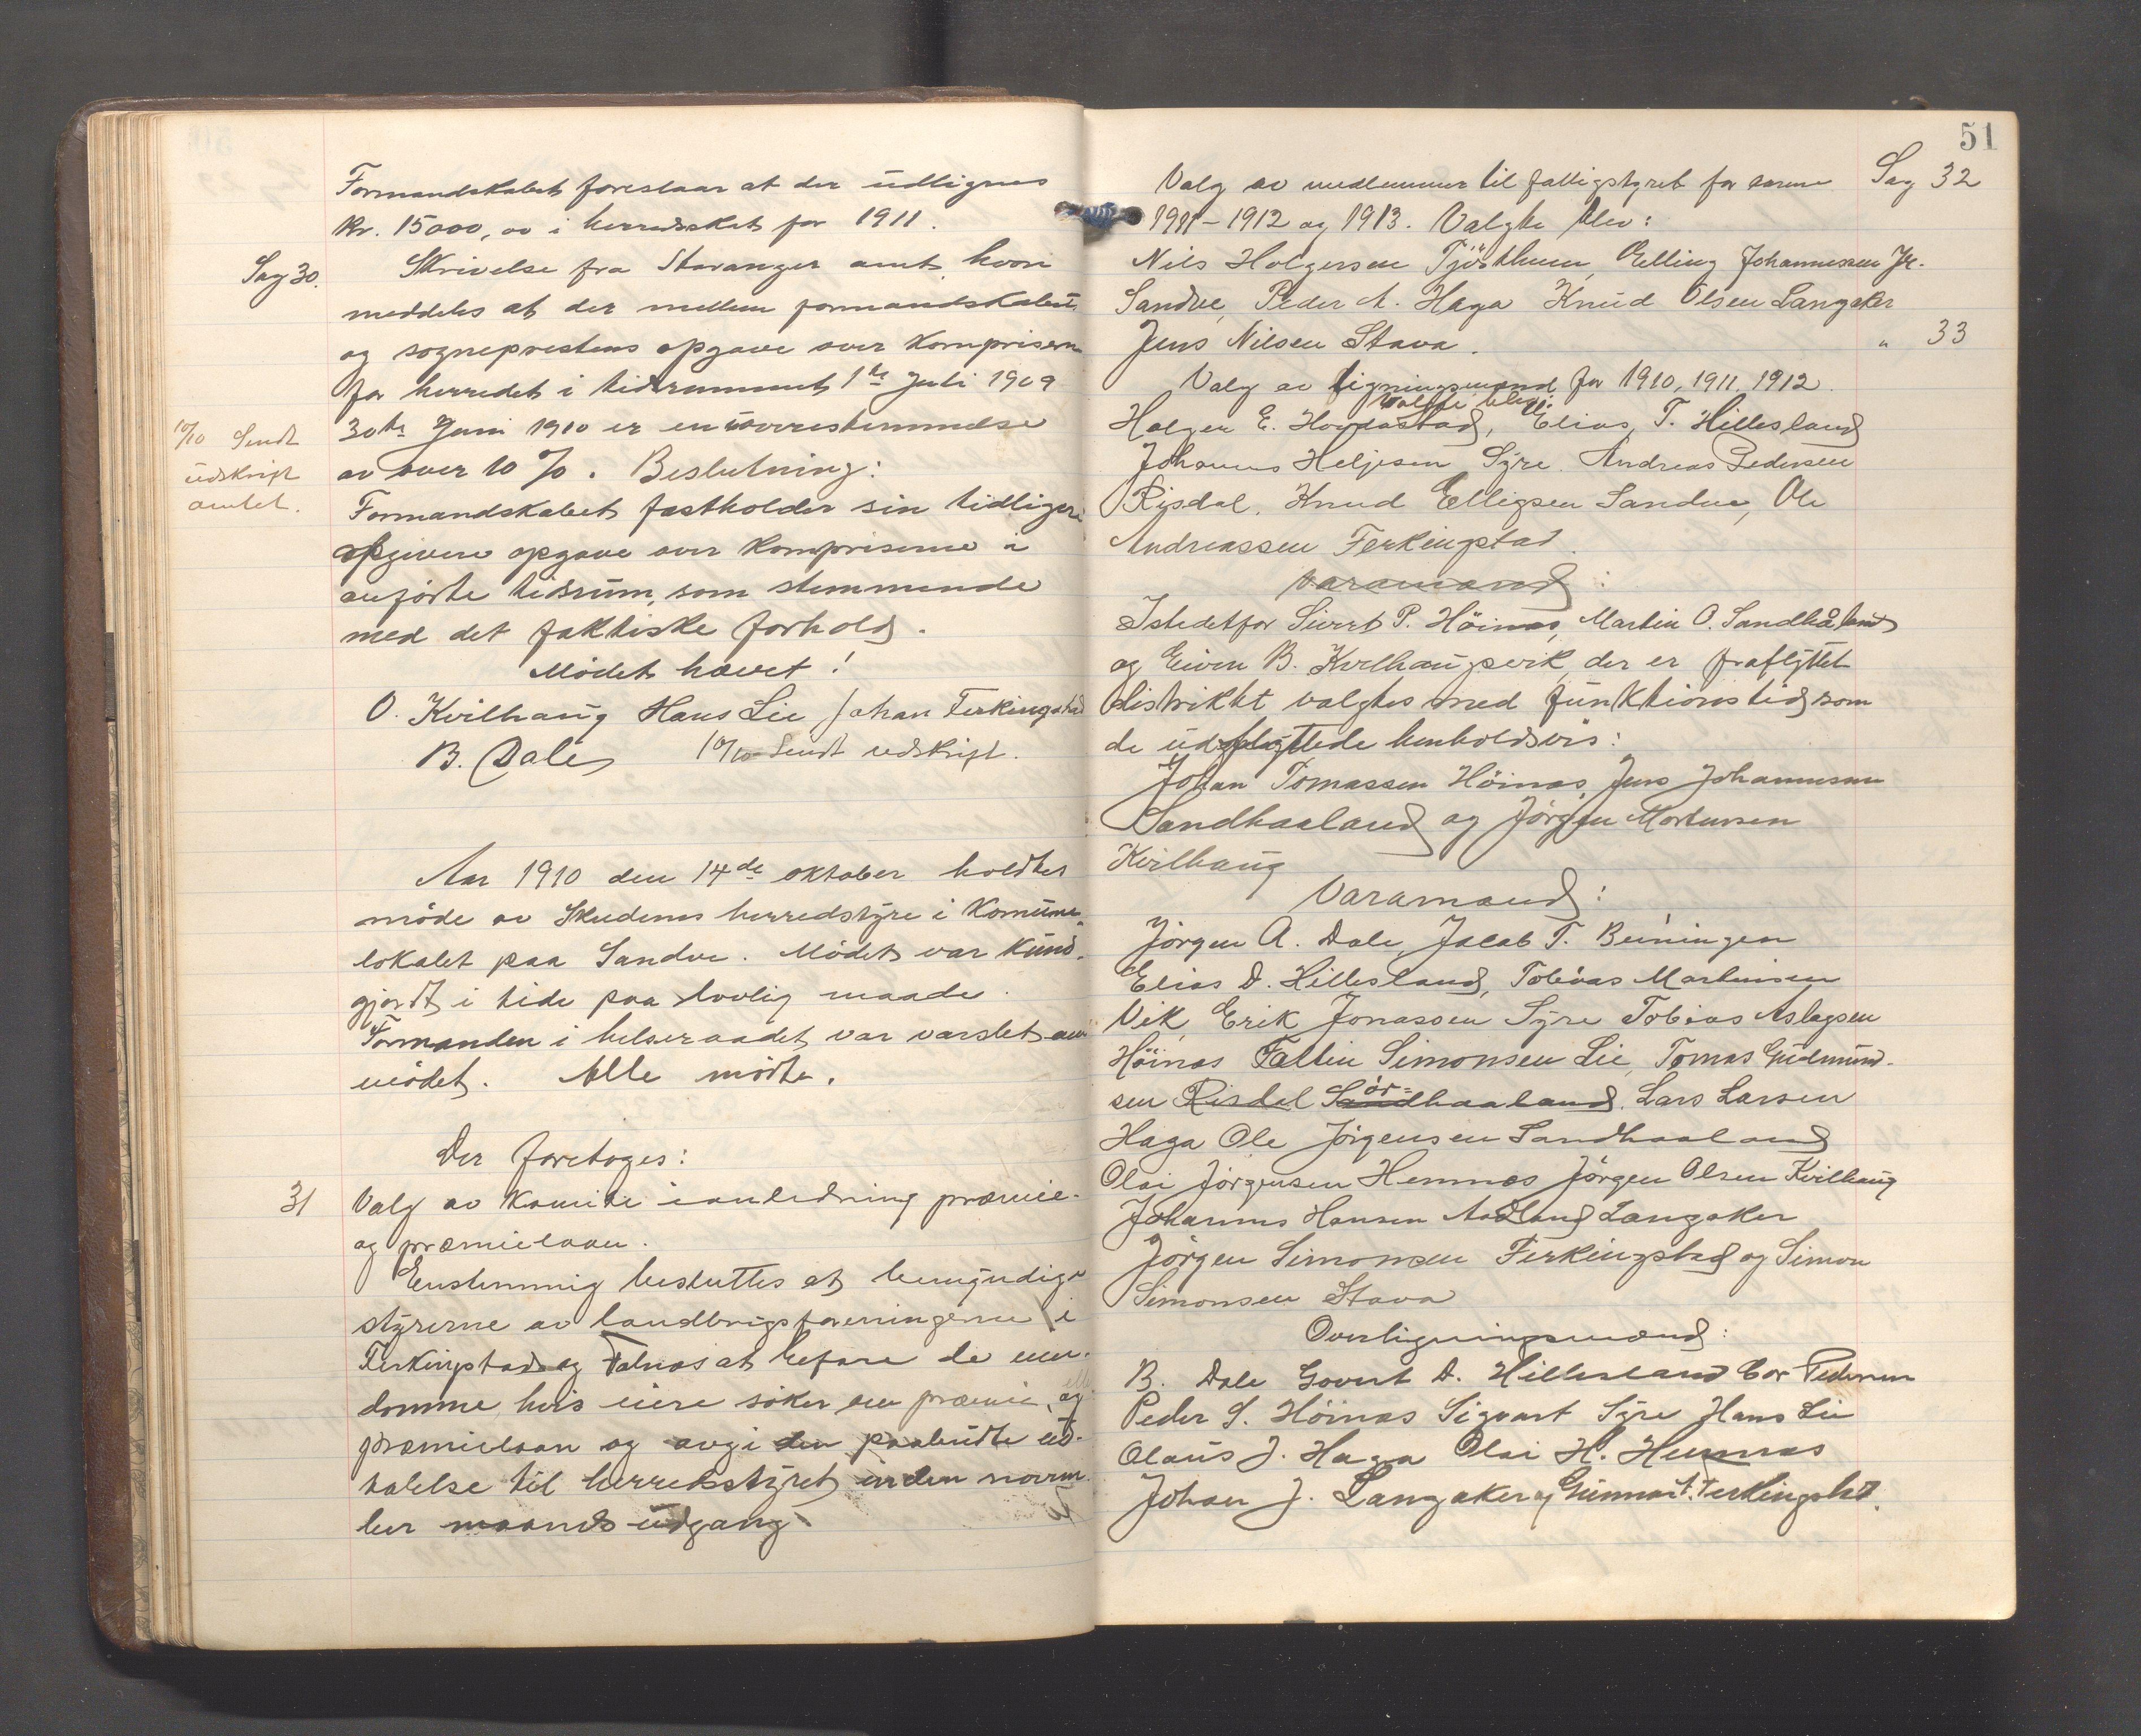 Formandskabet foreslaar at der udlignes
Kr. 15000, oo i herredsskat for 1911.
Sag 30. Skrivelse fra Stavanger amt, hvori
meddeles at der mellem formandskabets
og sogneprestens opgave over Kornpriserne
for herredet i tidsrummet 1ste Juli 1909
30te Juni 1910 er en uoverrestemmelse
av over 10 %. Beslutning:
10/10 Sendt
udskrift
amtet.
Formandskabet fastholder sin tidligere
opgivere opgave over Kornpriserne i
anførte tidsrum, som stemmende
med det faktiske forhold.
Mødet hævet!
O. Kvilhaug Hans Lie Johan Ferkingstad
B. Dale 10/10 Sendt udskrift.
Aar 1910 den 14de oktober holdtes
møde av Skudenes herredstyre i Komune-
lokalet paa Sandve. Mødet var kund-
gjordt i tide paa lovlig maade.
Formanden i helseraadet var varslet om
mødet. Alle mødte.
Der foretoges:
31 Valg av Komite i anledning præmie-
og præmielaan.
Enstemmig besluttes at bemyndige
styrerne av landbrugsforeningerne i
Ferkingstad og Falnæs at befare de eien-
domme, hvis eiere søker om præmie, og
præmielaan og avgi den paabudte ud-
talelse til herredsstyret inden novem-
ber maands udgang.
51
Valg av medlemmer til fattigstyret for aarene Sag 32
1911-1912 og 1913. Valgte blev:
Nils Holgersen Tjøsthem, Elling Johannessen Jr.
Sandve, Peder A. Haga Knud Olsen Langaker
Jens Nilsen Stava.
" 33
Valg av ligningsmænd for 1910, 1911, 1912.
valgte blev:
Holger E. Hovdastad, Elias T. Hillesland
Johannes Heljesen Syre. Andreas Pedersen
Risdal, Knud Elligsen Sandve, Ole
Andreassen Ferkingstad.
varamænd:
Istedetfor Sivert P. Höinæs, Martin O. Sandhåland
og Eiven B. Kvilhaugsvik, der er fraflyttet
distriktet valgtes med funktionstid som
de udflyttede henholdsvis:
Johan Tomassen Höinæs, Jens Johannessen
Sandhaaland og Jørgen Mortensen
Kvilhaug
Varamænd:
Jørgen A. Dale, Jacob T. Beiningen
Elias D. Hillesland, Tobias Martinsen
Vik, Erik Jonassen Syre Tobias Aslagsen
Höinæs Fallin Simonsen Lie, Tomas Gudmund-
sen Risdal Sørhaaland. Lars Larsen
Haga Ole Jørgensen Sandhaaland
Olai Jørgensen Hemnæs Jørgen Olsen Kvilhaug
Johannes Hansen Aadland Langaker
Jørgen Simonsen Ferkingstad og Simon
Simonsen Stava
Overligningsmænd:
B. Dale Govert D. Hillesland Cor Pedersen
Peder S. Höinæs Sigvart Syre Hans Lie
Olaus J. Haga Olai H. Hemnæs
Johan J. Langaker og Gunnar A. Ferkingstad.